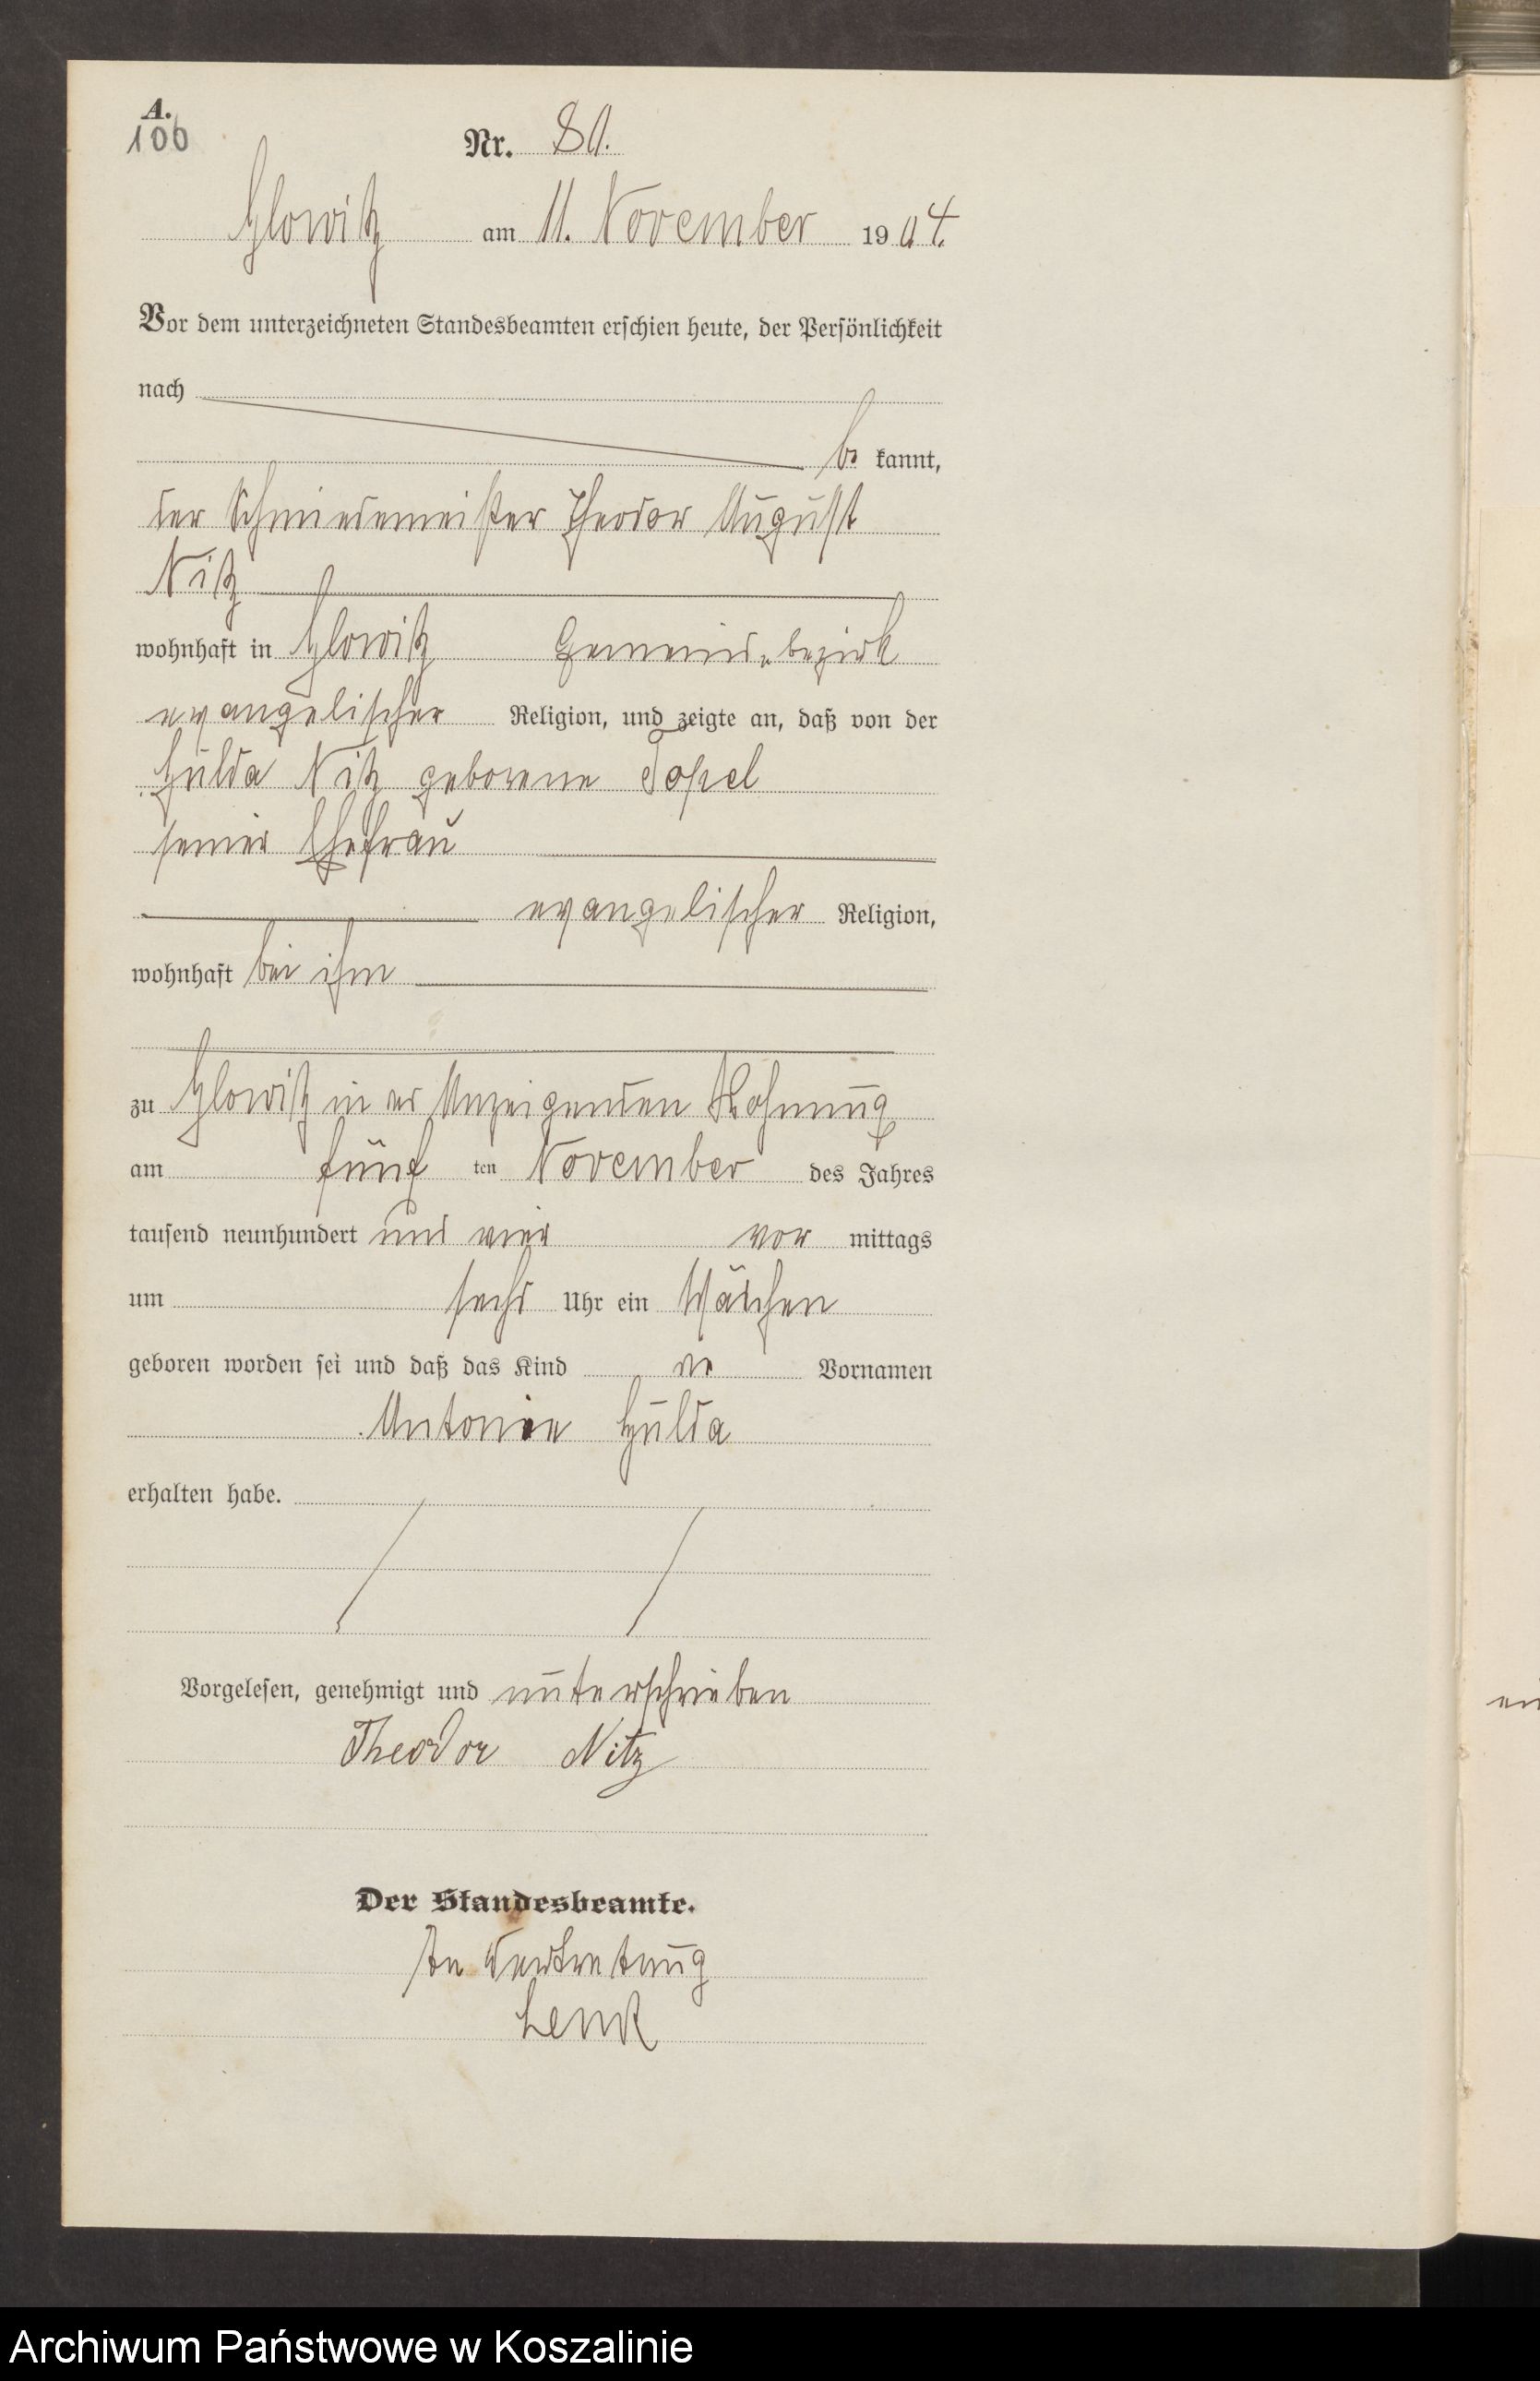 A.
100
Nr. 80.
Glowitz am 11. November 1904.
Vor dem unterzeichneten Standesbeamten erschien heute, der Persönlichkeit
nach
be kannt,
der Schmiedemeister Theodor August
Nitz
wohnhaft in Glowitz Gemeindebezirk
evangelischer Religion, und zeigte an, daß von der
Hulda Nitz geborene Topel
seiner Ehefrau
evangelischer Religion,
wohnhaft bei ihm
zu Glowitz in des Anzeigenden Wohnung
am fünf ten November des Jahres
tausend neunhundert und vier vor mittags
um sechs Uhr ein Mädchen
geboren worden sei und daß das Kind die Vornamen
Antonie Hulda
erhalten habe.
Vorgelesen, genehmigt und unterschrieben
Theodor Nitz
Der Standesbeamte.
In Vertretung
Lenk
Archiwum Państwowe w Koszalinie